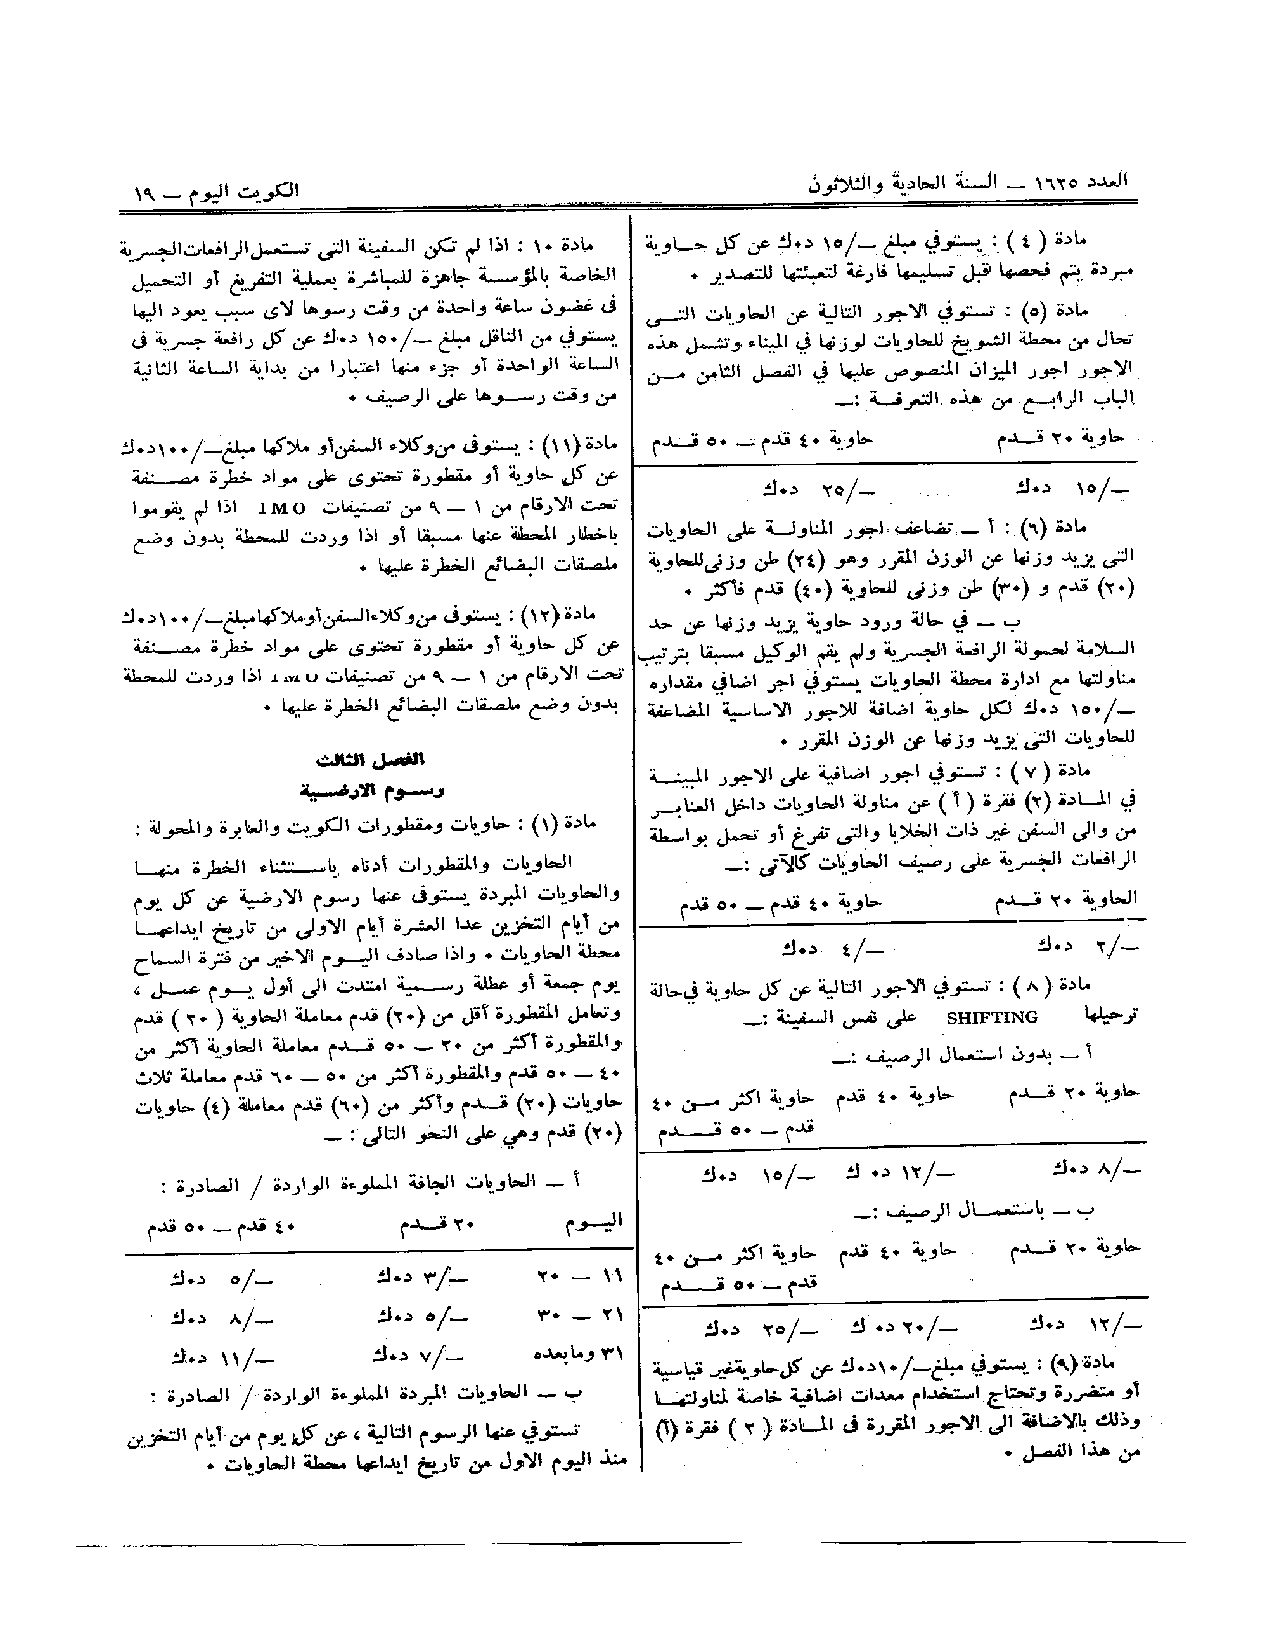 العدد ١٦٢٥ — السنة الحادية والثلاثون
الكويت اليوم — ١٩
مادة ( ٤ ) : يستوفي مبلغ —/١٥ د.ك عن كل حاوية
مبردة يتم فحصها قبل تسليمها فارغة لتعبئتها للتصدير .
مادة (٥) : تستوفي الاجور التالية عن الحاويات التى
تحال من محطة الشويخ للحاويات لوزنها في الميناء وتشمل هذه
الاجور اجور الميزان المنصوص عليها في الفصل الثامن من
الباب الرابع من هذه التعرفة :—
حاوية ٢٠ قدم حاوية ٤٠ قدم — ٥٠ قدم
—/١٥ د.ك —/٢٥ د.ك
مادة (٦) : أ — تضاعف اجور المناولة على الحاويات
التى يزيد وزنها عن الوزن المقرر وهو (٢٤) طن وزنى للحاوية
(٢٠) قدم و (٣٠) طن وزنى للحاوية (٤٠) قدم فأكثر .
ب — في حالة ورود حاوية يزيد وزنها عن حد
السلامة لحمولة الرافعة الجسرية ولم يقم الوكيل مسبقا بترتيب
مناولتها مع ادارة محطة الحاويات يستوفي اجر اضافي مقداره
—/١٥٠ د.ك لكل حاوية اضافة للاجور الاساسية المضاعفة
للحاويات التى يزيد وزنها عن الوزن المقرر .
مادة ( ٧ ) : تستوفي اجور اضافية على الاجور المبينة
في المادة (٢) فقرة ( أ ) عن مناولة الحاويات داخل العنابر
من والى السفن غير ذات الخلايا والتى تفرغ أو تحمل بواسطة
الرافعات الجسرية على رصيف الحاويات كالآتى :—
الحاوية ٢٠ قدم حاوية ٤٠ قدم — ٥٠ قدم
—/٢ د.ك —/٤ د.ك
مادة ( ٨ ) : تستوفي الاجور التالية عن كل حاوية في حالة
ترحيلها SHIFTING على نفس السفينة :—
أ — بدون استعمال الرصيف :—
حاوية ٢٠ قدم حاوية ٤٠ قدم حاوية اكثر من ٤٠
قدم — ٥٠ قدم
—/٨ د.ك —/١٢ د.ك —/١٥ د.ك
ب — باستعمال الرصيف :—
حاوية ٢٠ قدم حاوية ٤٠ قدم حاوية اكثر من ٤٠
قدم — ٥٠ قدم
—/١٢ د.ك —/٢٠ د.ك —/٢٥ د.ك
مادة (٩) : يستوفي مبلغ —/١٠ د.ك عن كل حاوية غير قياسية
أو متضررة وتحتاج استخدام معدات اضافية خاصة لمناولتها
وذلك بالاضافة الى الاجور المقررة فى المادة ( ٢ ) فقرة (أ)
من هذا الفصل .
مادة ١٠ : اذا لم تكن السفينة التى تستعمل الرافعات الجسرية
الخاصة بالمؤسسة جاهزة للمباشرة بعملية التفريغ أو التحميل
فى غضون ساعة واحدة من وقت رسوها لاى سبب يعود اليها
يستوفي من الناقل مبلغ —/١٥٠ د.ك عن كل رافعة جسرية فى
الساعة الواحدة أو جزء منها اعتبارا من بداية الساعة الثانية
من وقت رسوها على الرصيف .
مادة (١١) : يستوفى من وكلاء السفن أو ملاكها مبلغ —/١٠٠ د.ك
عن كل حاوية أو مقطورة تحتوى على مواد خطرة مصنفة
تحت الارقام من ١ — ٩ من تصنيفات IMO اذا لم يقوموا
باخطار المحطة عنها مسبقا أو اذا وردت للمحطة بدون وضع
ملصقات البضائع الخطرة عليها .
مادة (١٢) : يستوفى من وكلاء السفن أو ملاكها مبلغ —/١٠٠ د.ك
عن كل حاوية أو مقطورة تحتوى على مواد خطرة مصنفة
تحت الارقام من ١ — ٩ من تصنيفات IMO اذا وردت للمحطة
بدون وضع ملصقات البضائع الخطرة عليها .
الفصل الثالث
رسوم الارضية
مادة (١) : حاويات ومقطورات الكويت والعابرة والمحولة :
الحاويات والمقطورات أدناه باستثناء الخطرة منها
والحاويات المبردة يستوفى عنها رسوم الارضية عن كل يوم
من أيام التخزين عدا العشرة أيام الاولى من تاريخ ايداعها
محطة الحاويات . واذا صادف اليوم الاخير من فترة السماح
يوم جمعة أو عطلة رسمية امتدت الى أول يوم عمل ،
وتعامل المقطورة أقل من (٢٠) قدم معاملة الحاوية ( ٢٠ ) قدم
والمقطورة أكثر من ٢٠ — ٥٠ قدم معاملة الحاوية أكثر من
٤٠ — ٥٠ قدم والمقطورة أكثر من ٥٠ — ٦٠ قدم معاملة ثلاث
حاويات (٢٠) قدم وأكثر من (٦٠) قدم معاملة (٤) حاويات
(٢٠) قدم وهي على النحو التالى : —
أ — الحاويات الجافة المملوءة الواردة / الصادرة :
اليوم ٢٠ قدم ٤٠ قدم — ٥٠ قدم
١١ — ٢٠ —/٣ د.ك —/٥ د.ك
٢١ — ٣٠ —/٥ د.ك —/٨ د.ك
٣١ وما بعده —/٧ د.ك —/١١ د.ك
ب — الحاويات المبردة المملوءة الواردة / الصادرة :
تستوفي عنها الرسوم التالية ، عن كل يوم من أيام التخزين
منذ اليوم الاول من تاريخ ايداعها محطة الحاويات .